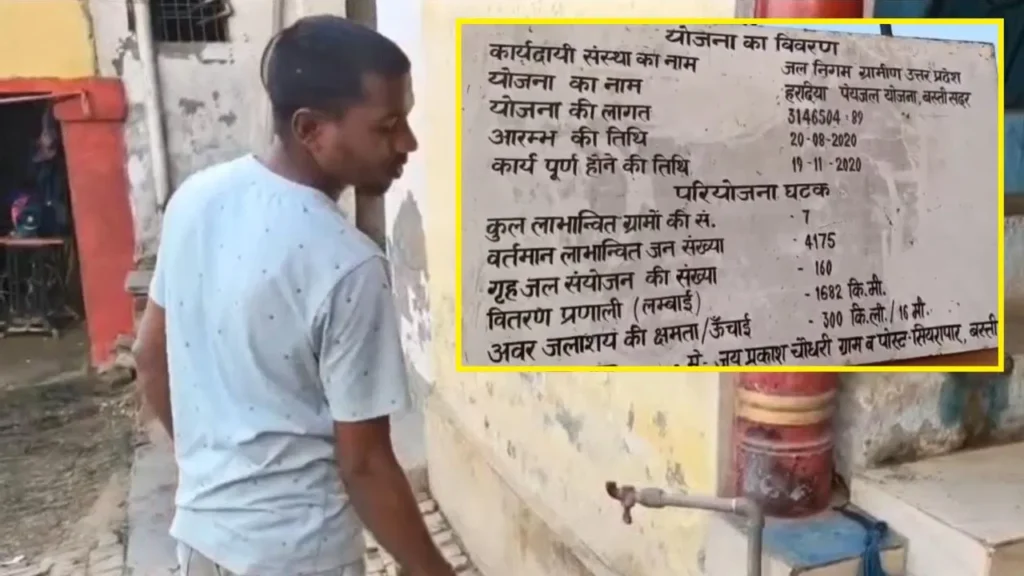 योजना का विवरण
कार्यदायी संस्था का नाम जल निगम ग्रामीण उत्तर प्रदेश
योजना का नाम हरदिया पेयजल योजना, बस्ती सदर
योजना की लागत 3146504.89
आरम्भ की तिथि 20-08-2020
कार्य पूर्ण होने की तिथि 19-11-2020
परियोजना घटक
कुल लाभान्वित ग्रामों की सं. - 7
वर्तमान लाभान्वित जन संख्या - 4175
गृह जल संयोजन की संख्या - 160
वितरण प्रणाली (लम्बाई) - 1682 कि.मी.
अवर जलाशय की क्षमता/ऊँचाई - 300 कि.ली./16 मी.
मे. जय प्रकाश चौधरी ग्राम व पोस्ट-सियरापार, बस्ती